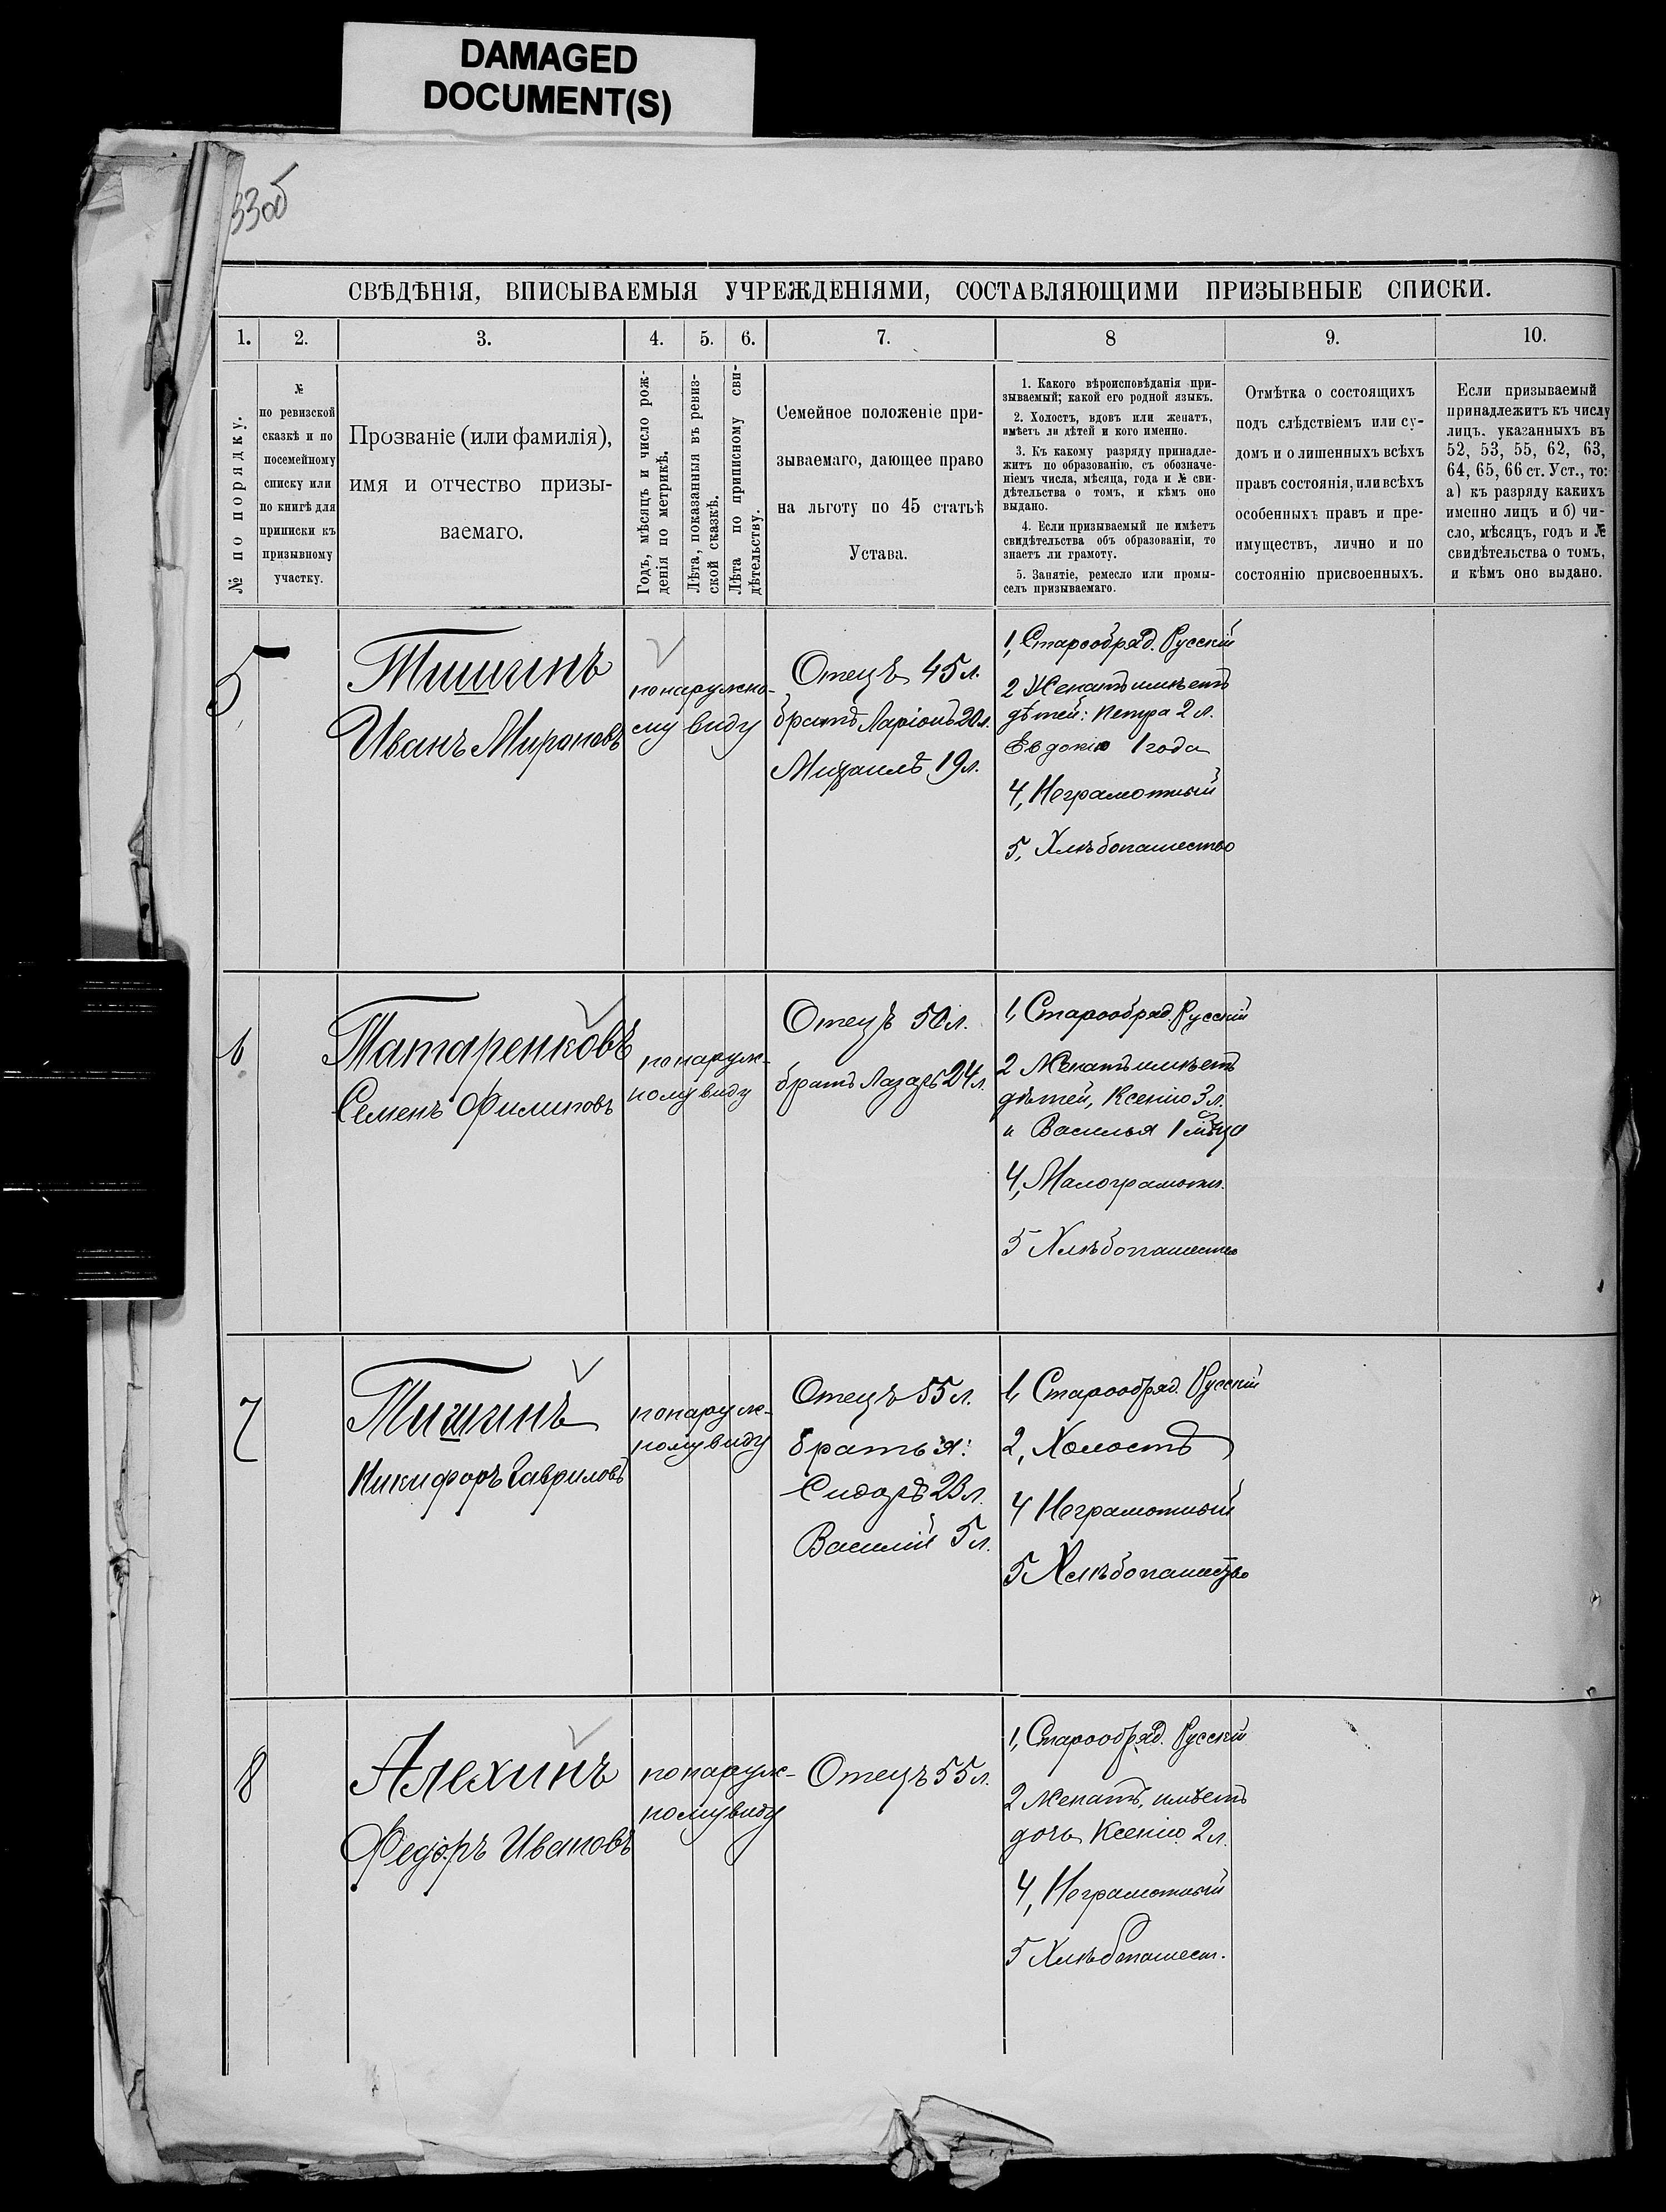 DAMAGED
DOCUMENT(S)
33об
СВѢДѢНІЯ, ВПИСЫВАЕМЫЯ УЧРЕЖДЕНІЯМИ, СОСТАВЛЯЮЩИМИ ПРИЗЫВНЫЕ СПИСКИ.
1. 2. 3. 4. 5. 6. 7. 8 9. 10.
№ по порядку.
№
по ревизской
сказкѣ и по
посемейному
списку или
по книгѣ для
приписки къ
призывному
участку.
Прозваніе (или фамилія),
имя и отчество призы-
ваемаго.
Годъ, мѣсяцъ и число рож-
денія по метрикѣ.
Лѣта, показанныя въ ревиз-
ской сказкѣ.
Лѣта по приписному сви-
дѣтельству.
Семейное положеніе при-
зываемаго, дающее право
на льготу по 45 статьѣ
Устава.
1. Какого вѣроисповѣданія при-
зываемый; какой его родной языкъ.
2. Холостъ, вдовъ или женатъ,
имѣетъ ли дѣтей и кого именно.
3. Къ какому разряду принадле-
житъ по образованію, съ обозначе-
ніемъ числа, мѣсяца, года и № сви-
дѣтельства о томъ, и кѣмъ оно
выдано.
4. Если призываемый не имѣетъ
свидѣтельства объ образованіи, то
знаетъ ли грамоту.
5. Занятіе, ремесло или промы-
селъ призываемаго.
Отмѣтка о состоящихъ
подъ слѣдствіемъ или су-
домъ и о лишенныхъ всѣхъ
правъ состоянія, или всѣхъ
особенныхъ правъ и пре-
имуществъ, лично и по
состоянію присвоенныхъ.
Если призываемый
принадлежитъ къ числу
лицъ, указанныхъ въ
52, 53, 55, 62, 63,
64, 65, 66 ст. Уст., то:
а) къ разряду какихъ
именно лицъ и б) чи-
сло, мѣсяцъ, годъ и №
свидѣтельства о томъ,
и кѣмъ оно выдано.
5
Тишинъ
Иванъ Мироновъ
по наружно-
му виду
Отецъ 45 л.
братъ Ларіонъ 20 л.
Михаилъ 19 л.
1, Старообряд. Русскій
2 Женатъ имѣетъ
дѣтей: Петра 2 л.
Евдокію 1 года
4, Неграмотный
5, Хлѣбопашество
6
Татаренковъ
Семенъ Филиповъ
по наруж-
ному виду
Отецъ 50 л.
братъ Лазарь 24 л.
1, Старообряд. Русскій
2 Женатъ имѣетъ
дѣтей, Ксенію 3 л.
и Василья 1 мѣсяца
4, Малограмотн.
5 Хлѣбопашество
7
Тишинъ
Никифоръ Гавриловъ
по наруж-
ному виду
Отецъ 55 л.
братья:
Сидоръ 23 л.
Василій 5 л.
1, Старообряд. Русскій
2, Холостъ
4 Неграмотный
5 Хлѣбопашество
8
Алехинъ
Федоръ Ивановъ
по наруж-
ному виду
Отецъ 55 л.
1, Старообряд. Русскій
2 Женатъ, имѣетъ
дочь Ксенію 2 л.
4, Неграмотный
5 Хлѣбопашест.